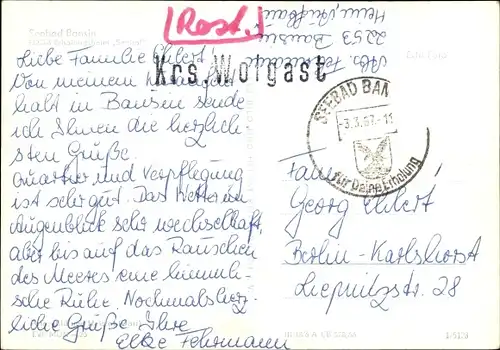 Seebad Bansin
(Rost.)
Krs. Wolgast
Liebe Familie Ehlert!
Von meinem
halt in Bansin sende
ich Ihnen die herzlich
sten Grüße.
Quartier und Verpflegung
ist sehr gut. Das Wetter im
Augenblick sehr wechselhaft,
aber bis auf das Rauschen
des Meeres eine himmli-
sche Ruhe. Nochmals herz-
liche Grüße Ihre
Elke Fehrmann
2253 Bansin
SEEBAD BAN
-3.3.67.-11
für Deine Erholung
Fam.
Georg Ehlert
Berlin-Karlshorst
Liepnitzstr. 28